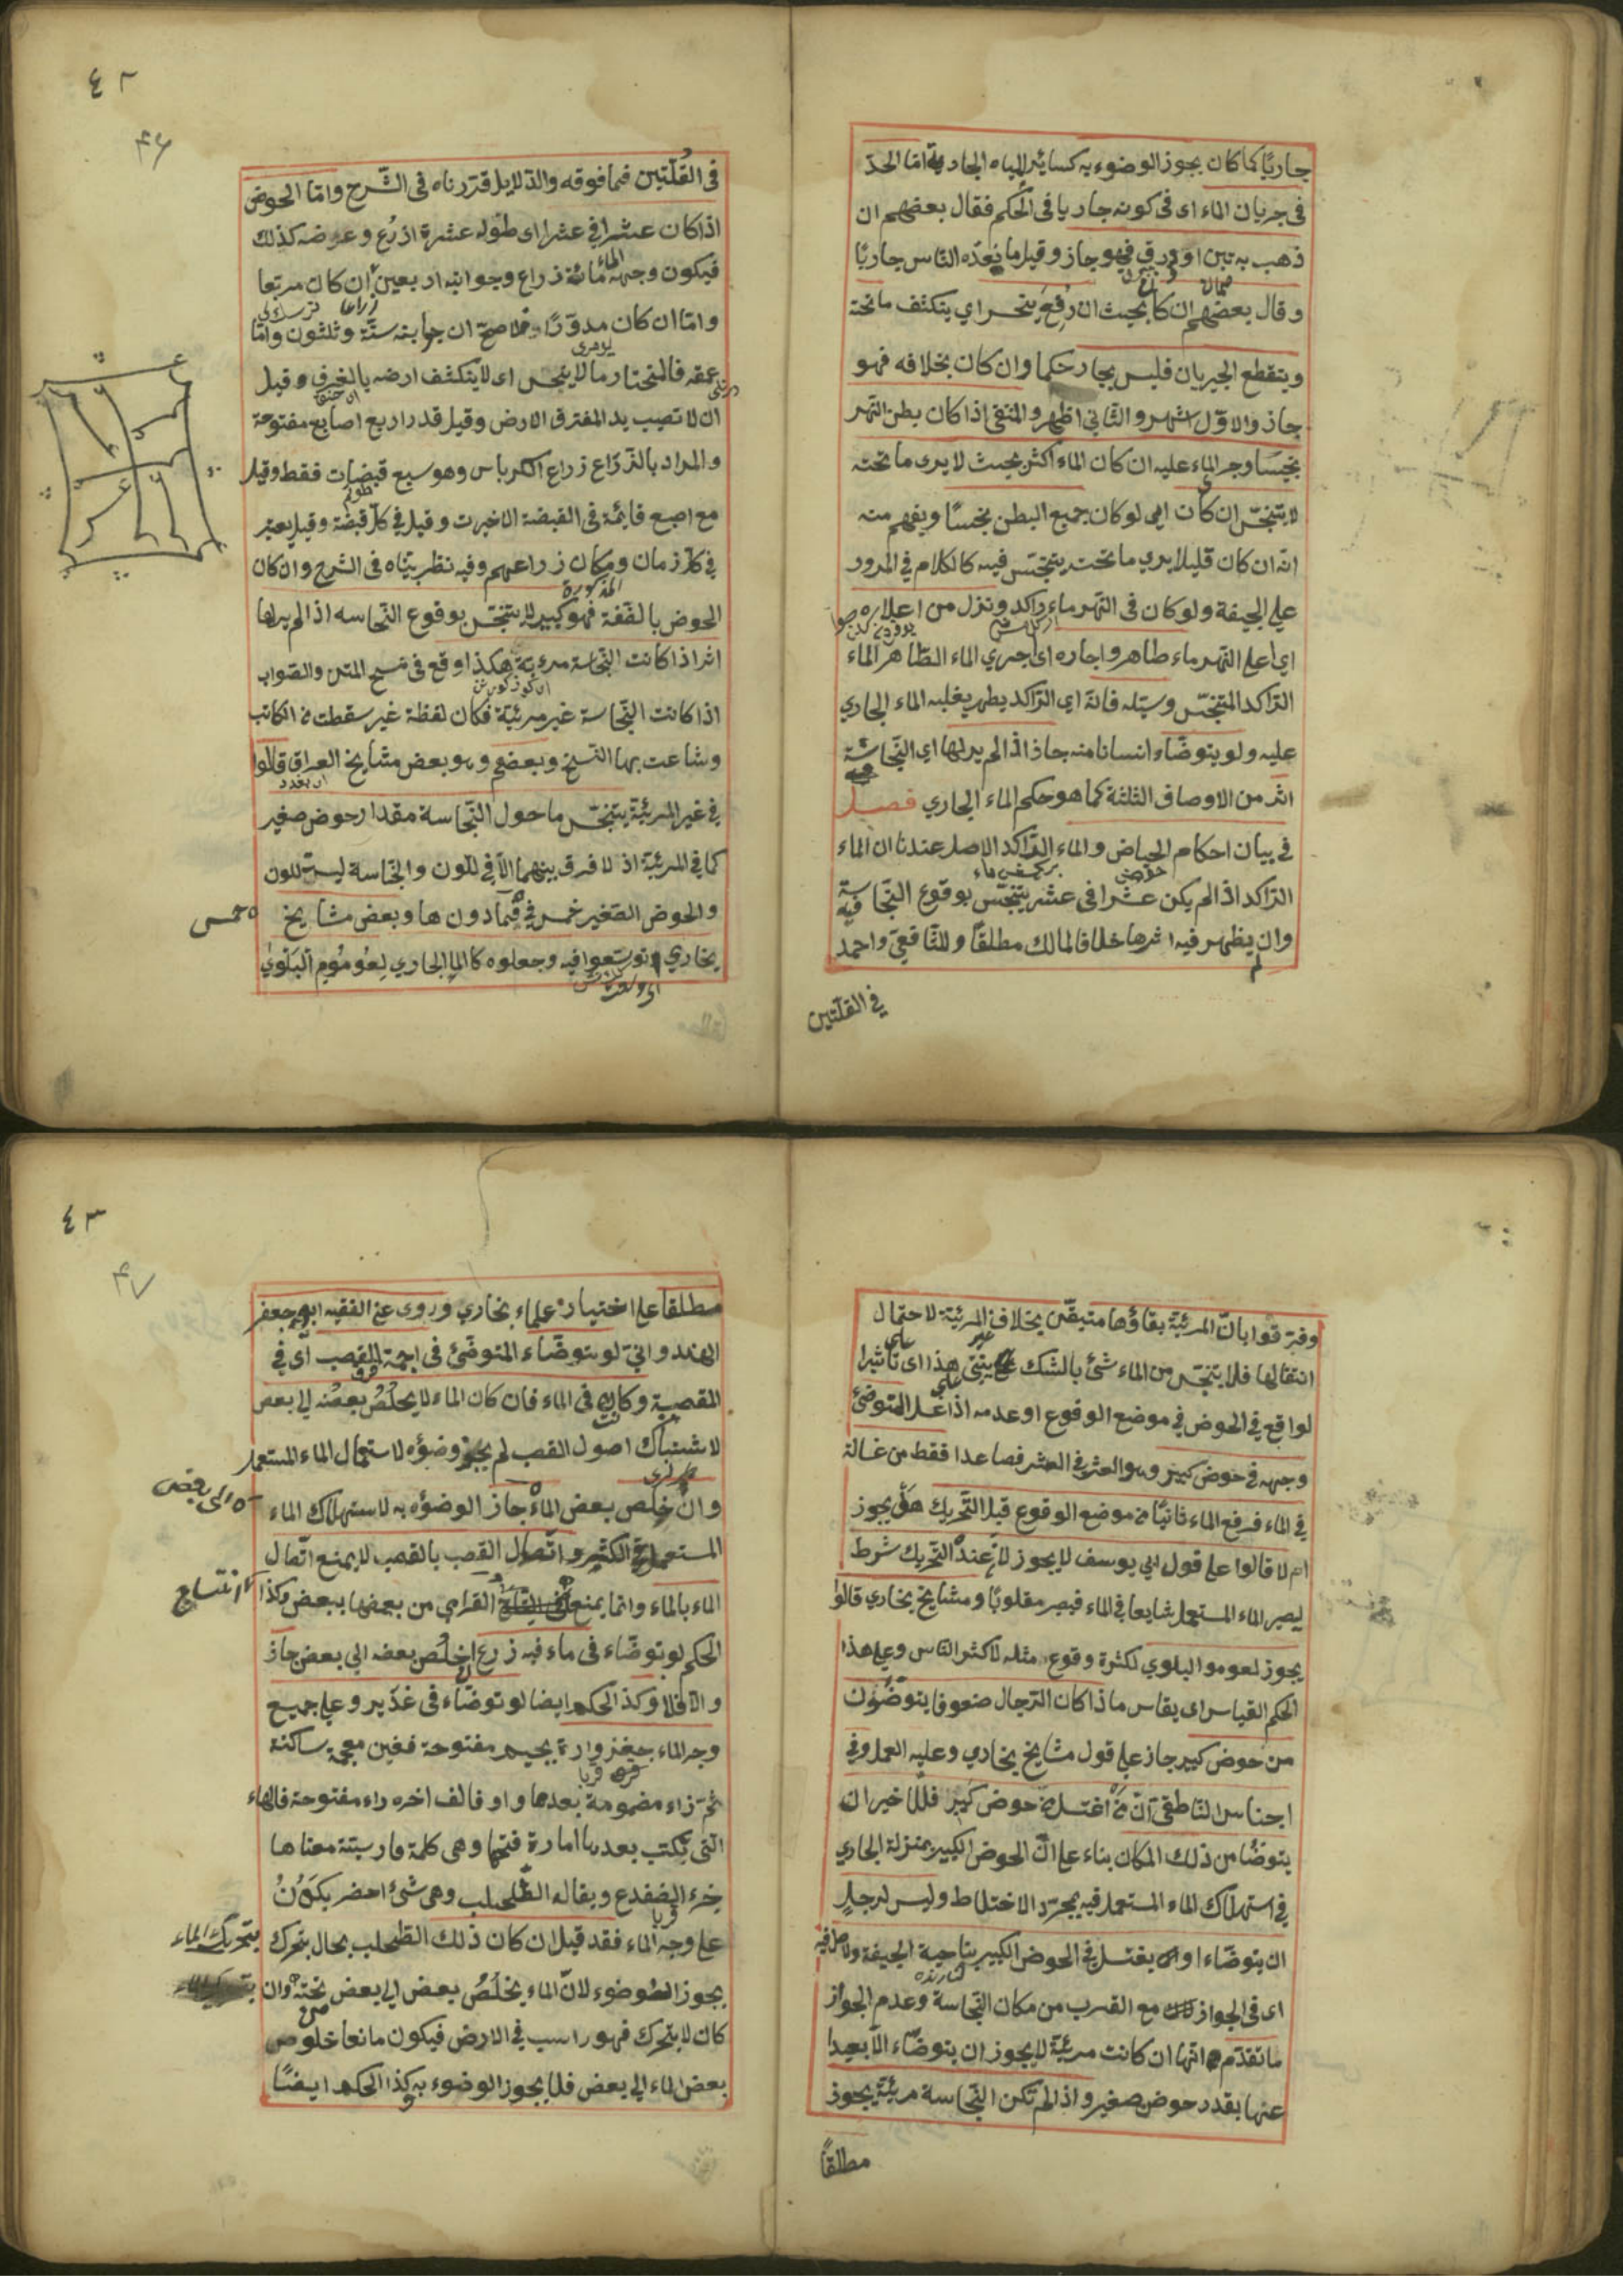 جاريًا كما كان يجوز الوضوء به كسائر المياه الجارية امّا الحدّ
فى جريان الماء اى فى كونه جاريا فى الحكم فقال بعضهم ان
ذهب به تبن او ورق فهو جاز وقيل ما يعدّه الناس جاريًا
وقال بعضهم ان كا بحيث ان رُفِعَ ينحسر اي ينكشف ما تحته
وينقطع الجريان فليس بجار حكما وان كان بخلافه فهو
جاز والاوّل اشهر والثاني اظهر والمنقى اذا كان بطن النهر
نجيسًا وجر الماء عليه ان كان الماء اكثر بحيث لا يرى ما تحته
لا يتنجّس ان كان اى لو كان جميع البطن نجسًا ويفهم منه
انّه ان كان قليلا يري ما تحته يتنجّس فيه كالكلام في المرور
علي الجيفة ولو كان فى النهر ماء راكد ونزل من اعلاه
اي اعلى النهر ماء طاهر واجاره اى اجري الماء الطّاهر الماء
الرّاكد المتنجّس وسيّله فانّه اي الرّاكد يطهر بغلبه الماء الجاري
عليه ولو يتوضّاء انسانا منه جاز اذا لم ير لها اي النّجاسة
اثر من الاوصاف الثلثة كما هو حكم الماء الجاري فصل
في بيان احكام الحياض والماء الرّاكد الاصل عندنا ان الماء
الرّاكد اذا لم يكن عشرا فى عشر يتنجّس بوقوع النّجاسة فيه
وان لم يظهر فيه اثرها خلافا لمالك مطلقًا وللشّافعىّ واحمد
في القلّتين
٤٢
٤٦
فى القُلّتين فما فوقه والدّلايل قدّرناه فى الشّرح وامّا الحوض
اذا كان عشرا في عشر اى طوله عشرة اذرُع وعرضه كذلك
فيكون وجه الماء مائة ذراع وجوانبه اربعين ان كان مربّعا
وامّا ان كان مدوّرًا فلاصحّ ان جوابنه ستّة وثلثون وامّا
عمقه فالمختار ما لا ينحسر اى لا ينكشف ارضه بالغرف وقيل
ان لا تصيب يد المغترق الارض وقيل قدر اربع اصابع مفتوحة
والمراد بالذّراع زراع الكرباس وهو سبع قبضات فقط وقيل
مع اصبع قايمة فى القبضة الاخيرت وقيل في كلّ قبضة وقيل يعتبر
في كلّ زمان ومكان زراعهم وفيه نظر بيّناه فى الشرح وان كان
الحوض بالصّفة المذكورة فهو كبير لا يتنجّس بوقوع النّجاسه اذا لم ير لها
اثر اذا كانت النّجاسة مرءية هكذا وقع فى نسخ المتن والصّواب
اذا كانت النّجاسة غير مرئيّة فكان لفظة غير سقطت من الكاتب
وشاعت بها النّسخ وبعضهم وهو بعض مشايخ العراق قالوا
في غير المرئيّة يتنجّس ما حول النّجاسة مقدار حوض صغير
كما في المرئيّة اذ لا فرق بينهما الّا في للون والنّجاسة ليست للون
والحوض الصّغير خمس في فما دون ها وبعض مشايخ
خمس
بخاري توسّعوا فيه وجعلوه كالما الجاري لِعُومُومِ البَلْوٰي
وفرّقوا بانّ المرئيّة بقاؤها متيقّن بخلاف غير المرئيّة لاحتمال
انتقالها فلا يتنجّس من الماء شئ بالشك يبتنى على هذا اى تأثير
لواقع في الحوض في موضع الوقوع او عدمه اذا غسل المتوضئ
وجهه في حوض كبير وهو العشر في العشر فصاعدا فقط من غسالة
في الماء فرفع الماء ثانيًا من موضع الوقوع قبل التّحريك هل يجوز
ام لا قالوا على قول ابي يوسف لا يجوز لانّ عنده التّحريك شرط
ليصير الماء المستعمل شايعا في الماء فيصير مغلوبًا ومشايخ بخاري قالوا
يجوز لعوموا البلوي لكثرة وقوع مثله لاكثر النّاس وعلى هذا
الحكم القياس اى يقاس ما اذا كان الرّجال صفوفا يتوضّؤون
من حوض كبير جاز علي قول مشايخ بخاري وعليه العمل وفي
اجناس النّاطفي انّ من اغتسل من حوض كبير فللآخير ان
يتوضّا من ذلك المكان بناء على انّ الحوض الكبير بمنزلة الجاري
في استهلاك الماء المستعمل فيه بمجرّد الاختلاط وليس لرجلٍ
ان يتوضّاء او يغتسل في الحوض الكبير بناحية الجيفة
اى فى الجواز مع القرب من مكان النّجاسة وعدم الجواز
ما تقدّم انّها ان كانت مرئيّة لا يجوز ان يتوضّاء الّا بعيدا
عنها بقدر حوض صغير واذا لم تكن النّجاسة مرئيّة يجوز
مطلقًا
٤٣
٤٧
مطلقا علي اختيار علماء بخاري وروى عن الفقيه ابو جعفر
الهندوانيّ لو يتوضّاء المتوضّئ فى اجمة القصب اى في
المقصبة وكان فى الماء فان كان الماء لا يخلُصُ بعضُه الي بعض
لاشتباك اصول القصب لم يجز وضؤه لاستعمال الماء المستعمل
وان خلص بعض الماء جاز الوضؤه به لاستهلاك الماء
الى بعض
المستعمل في الكثير واتّصال القصب بالقصب لا يمنع اتّصال
الماء بالماء وانّما يمنع القرامي من بعضها ببعض وكذا
الحكم لو توضّاء فى ماء فيه زرع ان خلُص بعضه الي بعض جاز
والّا فلا وكذا الحكم ايضا لو توضّاء فى غدير وعلي جميع
وجه الماء جغزوارة بجيم مفتوحة فغين معجمة ساكنة
ثمّ زاء مضمومة بعدها واو فالف اخره راء مفتوحة فالهاء
الّتى يكتب بعدها امارة فتحها وهى كلمة فارسيّة معناها
خرء الضفدع ويقال له الطّحلب وهى شئ اخضر يكونُ
علي وجه الماء فقد قيل ان كان ذلك الطّحلب بحال يتحرك
بتحريك الماء
يجوز الوضوء لانّ الماء يخلُصُ بعض الي بعض تحته وان
كان لا يتحرّك فهو راسب في الارض فيكون مانعا خلوص
بعض الماء الي بعض فلا يجوز الوضوء به كذا الحكم ايضًا